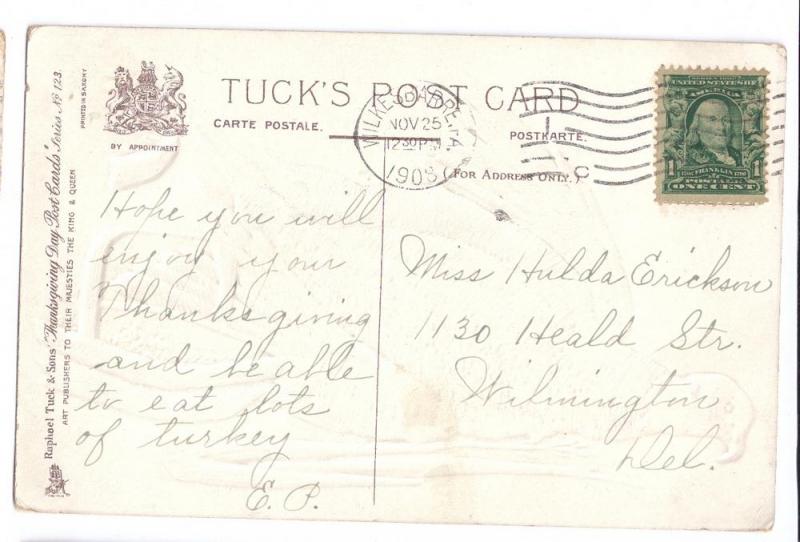 TUCK'S POST CARD
CARTE POSTALE.
POSTKARTE.
(FOR ADDRESS ONLY.)
BY APPOINTMENT
PRINTED IN SAXONY
Raphael Tuck & Sons' "Thanksgiving Day Post Cards" Series No 123.
ART PUBLISHERS TO THEIR MAJESTIES THE KING & QUEEN
WILKES-BARRE, PA.
NOV 25
12 30 P.M.
1908
C
UNITED STATES OF
AMERICA
1 FRANKLIN 1
POSTAGE
ONE CENT
Hope you will
enjoy your
Thanksgiving
and be able
to eat lots
of turkey
E. P.
Miss Hulda Erickson
1130 Heald Str.
Wilmington
Del.